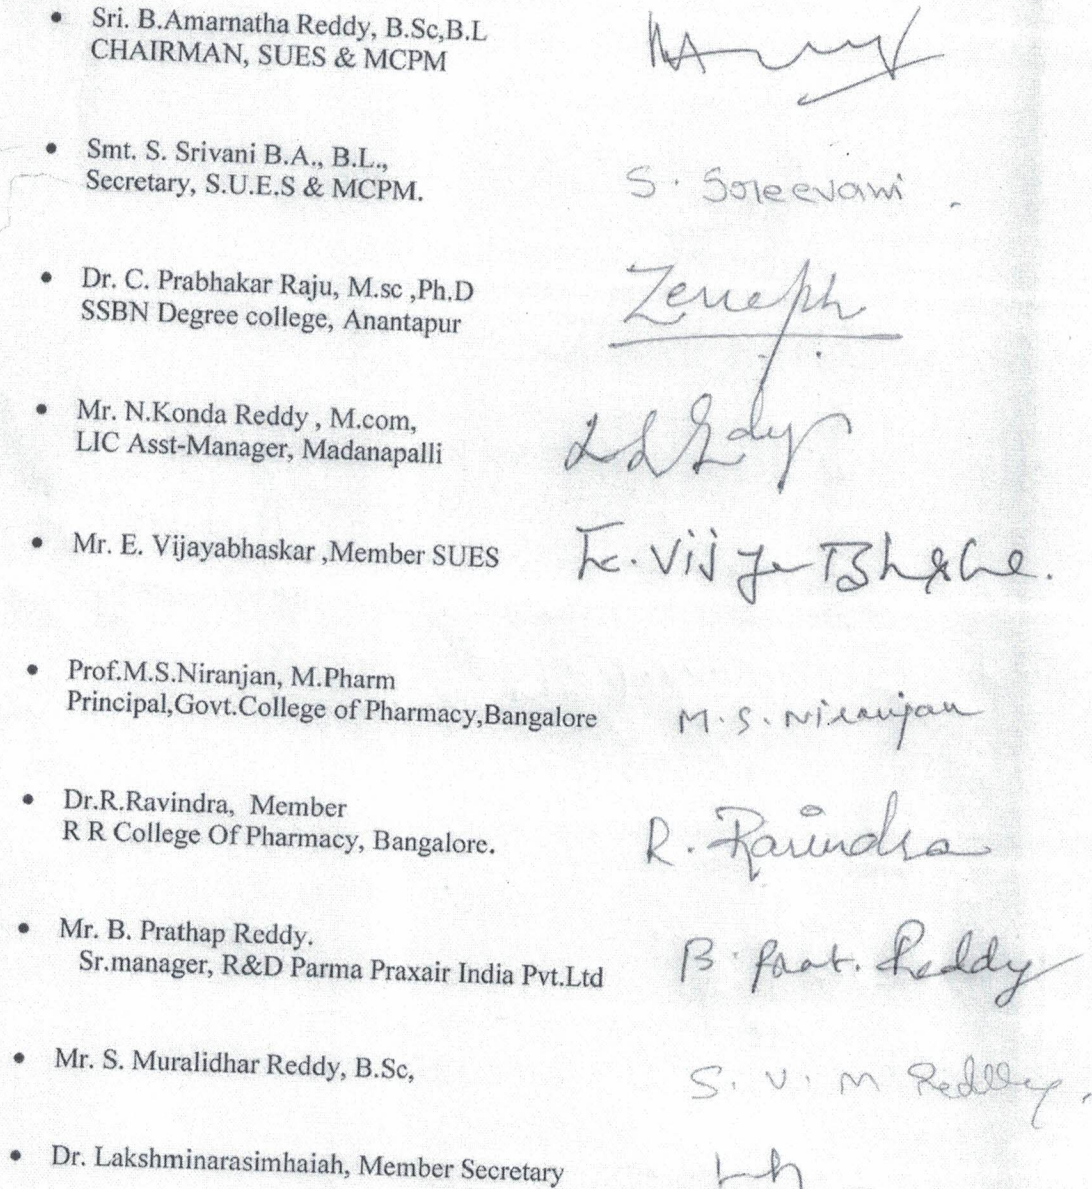 • Sri. B.Amarnatha Reddy, B.Sc,B.L
CHAIRMAN, SUES & MCPM
• Smt. S. Srivani B.A., B.L.,
Secretary, S.U.E.S & MCPM.
S. Sreevani
• Dr. C. Prabhakar Raju, M.sc ,Ph.D
SSBN Degree college, Anantapur
• Mr. N.Konda Reddy , M.com,
LIC Asst-Manager, Madanapalli
• Mr. E. Vijayabhaskar ,Member SUES
• Prof.M.S.Niranjan, M.Pharm
Principal,Govt.College of Pharmacy,Bangalore
M.S. Niranjan
• Dr.R.Ravindra, Member
R R College Of Pharmacy, Bangalore.
R. Ravindra
• Mr. B. Prathap Reddy.
Sr.manager, R&D Parma Praxair India Pvt.Ltd
B. Prat. Reddy
• Mr. S. Muralidhar Reddy, B.Sc,
S. V. M Reddy.
• Dr. Lakshminarasimhaiah, Member Secretary